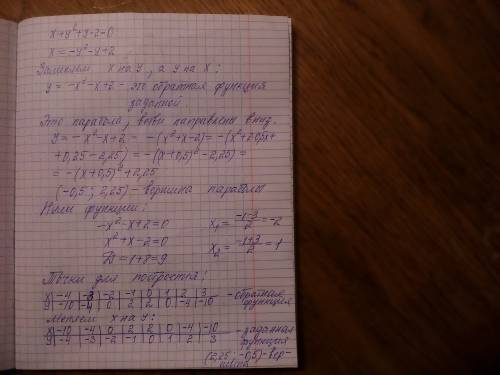 x+y²+y-2=0
x=-y²-y+2
Заменяем x на y, а y на x:
y=-x²-x+2 - это обратная функция
заданной.
Это парабола, ветви направлены вниз.
y=-x²-x+2= -(x²+x-2)=-(x²+2·0,5x+
+0,25-2,25)=-((x+0,5)²-2,25)=
=-(x+0,5)²+2,25
(-0,5; 2,25)-вершина параболы
Нули функции:
-x²-x+2=0
x²+x-2=0
D=1+8=9
x₁=(-1-3)/2=-2
x₂=(-1+3)/2=1
Точки для построения:
x|-4|-3|-2|-1|0|1|2|3 - обратная
y|-10|-4|0|2|2|0|-4|-10 функция
Меняем x на y:
x|-10|-4|0|2|2|0|-4|-10 - заданная
y|-4|-3|-2|-1|0|1|2|3 функция
(2,25; -0,5)-вер-
шина